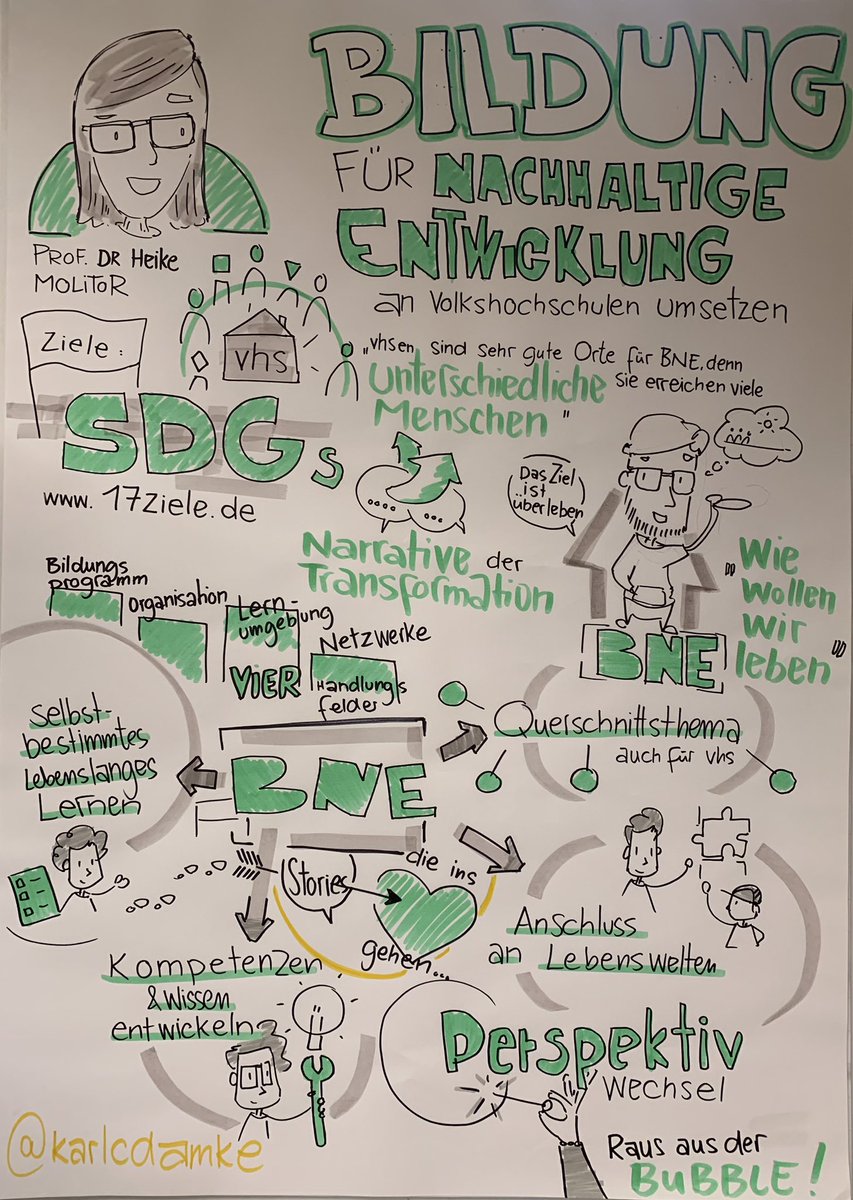 BILDUNG
FÜR NACHHALTIGE
ENTWICKLUNG
an Volkshochschulen umsetzen
PROF. DR Heike
MOLITOR
vhs
Ziele:
SDGs
www.17ziele.de
„vhsen sind sehr gute Orte für BNE, denn
sie erreichen viele
unterschiedliche
Menschen"
Narrative der
Transformation
Das Ziel
ist
überleben
„Wie
wollen
wir
leben"
BNE
Bildungs
programm
Organisation
Lern-
umgebung
Netzwerke
VIER
Handlungs
felder
BNE
Selbst-
bestimmtes
Lebenslanges
Lernen
Querschnittsthema
auch für vhs
Stories
die ins
gehen...
Anschluss
an Lebenswelten
Kompetenzen
& Wissen
entwickeln
Perspektiv
Wechsel
Raus aus der
BuBBLE!
@karlcdamke